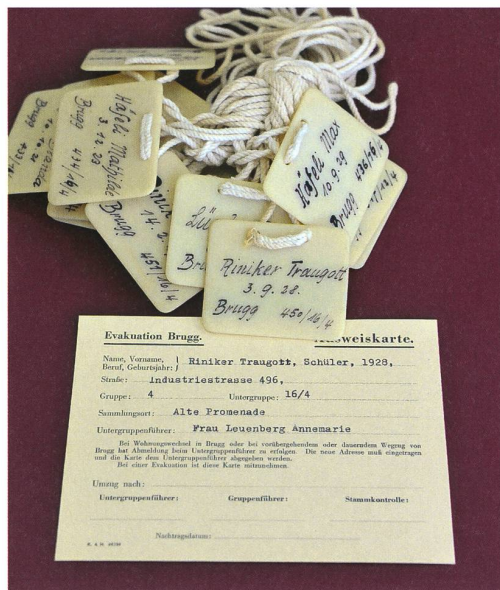 Häfeli Mathilde
3.12.23
Brugg 434/16/4
Brugg
10.10.22
433/16
14.2.
Brugg
451/16/4
Lü
Br
Häfeli Max
10.9.29
Brugg 436/16/4
Riniker Traugott
3.9.28.
Brugg 450/16/4
Evakuation Brugg. Ausweiskarte.
Name, Vorname, Beruf, Geburtsjahr: Riniker Traugott, Schüler, 1928,
Straße: Industriestrasse 496,
Gruppe: 4 Untergruppe: 16/4
Sammlungsort: Alte Promenade
Untergruppenführer: Frau Leuenberg Annemarie
Bei Wohnungswechsel in Brugg oder bei vorübergehendem oder dauerndem Wegzug von
Brugg hat Abmeldung beim Untergruppenführer zu erfolgen. Die neue Adresse muß eingetragen
und die Karte dem Untergruppenführer abgegeben werden.
Bei einer Evakuation ist diese Karte mitzunehmen.
Umzug nach:
Untergruppenführer: Gruppenführer: Stammkontrolle:
Nachtragsdatum: